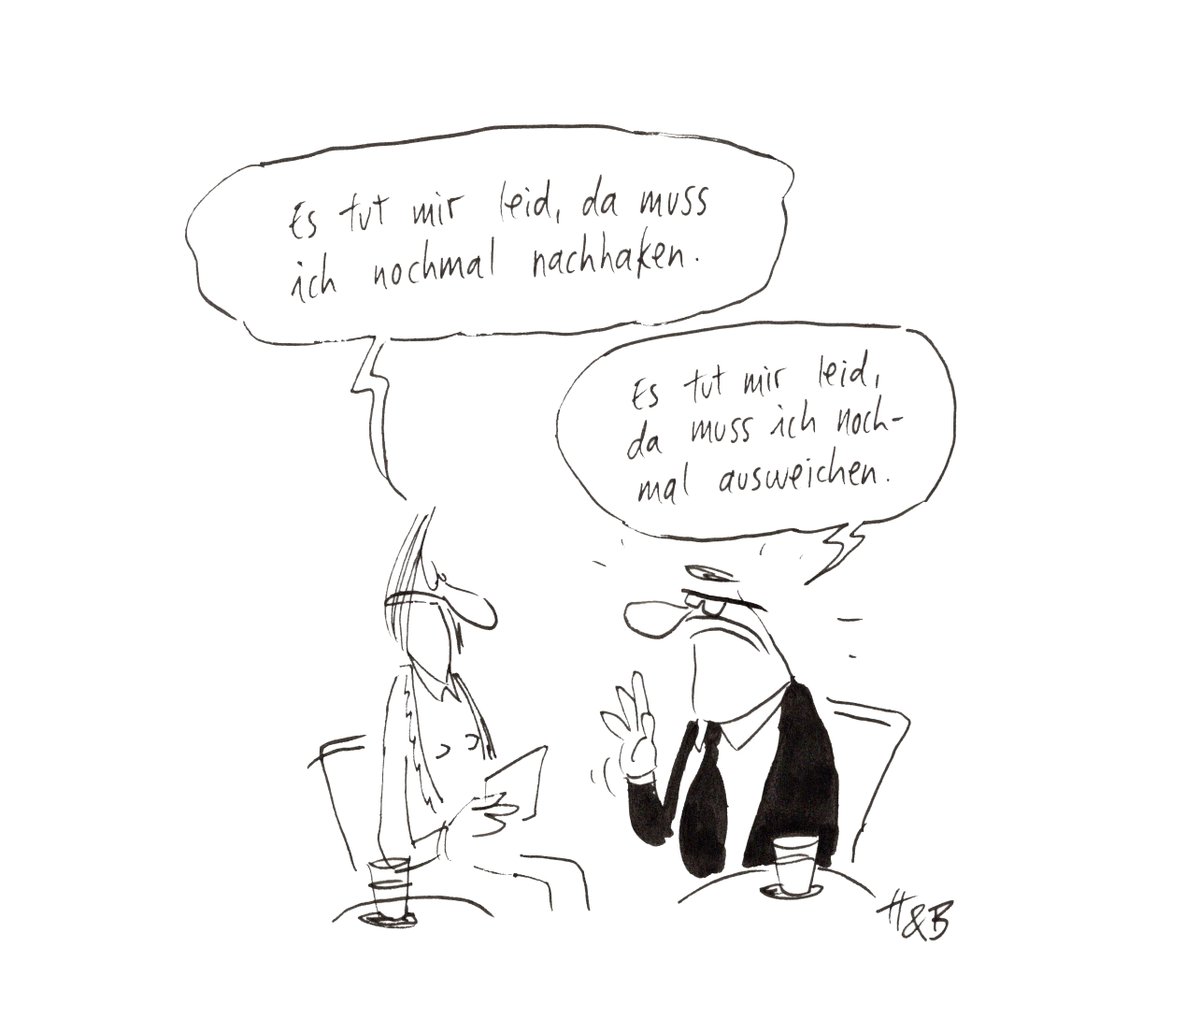 Es tut mir leid, da muss
ich nochmal nachhaken.
Es tut mir leid,
da muss ich noch-
mal ausweichen.
H&B